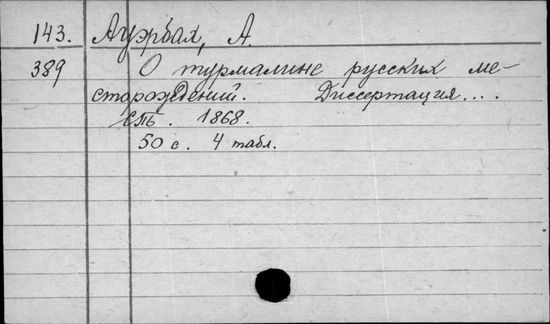 143. Ауэрбах, А.
389 О турмалине русских ме-
сторождений. Диссертация...
СПб. 1868.
50 с. 4 табл.